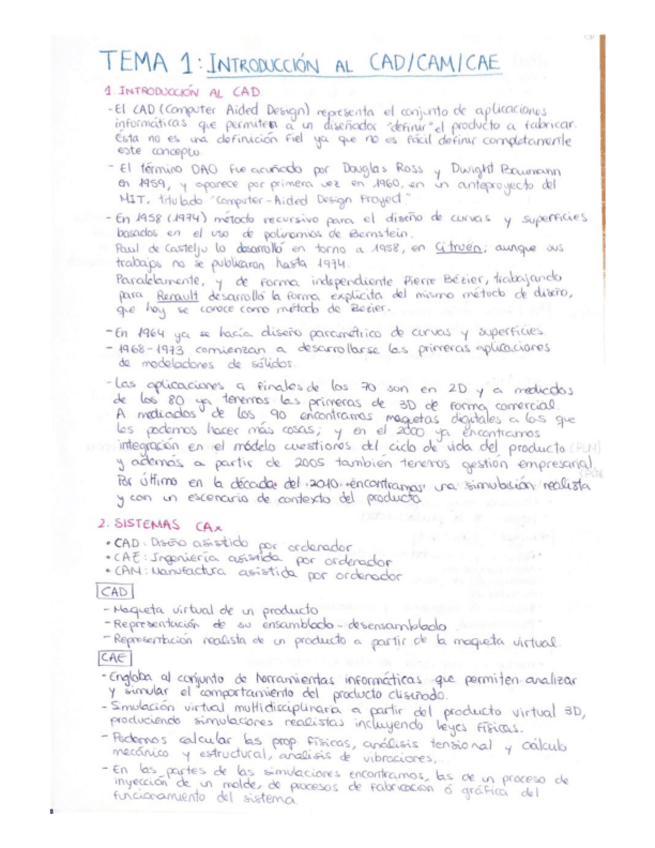 TEMA 1: INTRODUCCIÓN AL CAD/CAM/CAE
1. INTRODUCCIÓN AL CAD
- El CAD (Computer Aided Design) representa el conjunto de aplicaciones
informáticas que permiten a un diseñador "definir" el producto a fabricar.
Esta no es una definición fiel ya que no es fácil definir completamente
este concepto.
- El término DAO fue acuñado por Douglas Ross y Dwight Baumann
en 1959, y aparece por primera vez en 1960, en un anteproyecto del
MIT, titulado "Computer-Aided Design Proyect"
- En 1958 (1974) método recursivo para el diseño de curvas y superficies
basados en el uso de polinomios de Bernstein.
Paul de Castelju lo desarrolló en torno a 1958, en Citroën, aunque sus
trabajos no se publicaron hasta 1974.
Paralelamente, y de forma independiente Pierre Bézier, trabajando
para Renault desarrolló la forma explícita del mismo método de diseño,
que hoy se conoce como método de Bezier.
- En 1964 ya se hacía diseño paramétrico de curvas y superficies
- 1968-1973 comienzan a desarrollarse las primeras aplicaciones
de modeladores de sólidos.
- Las aplicaciones a finales de los 70 son en 2D y a mediados
de los 80 ya tenemos las primeras de 3D de forma comercial.
A mediados de los 90 encontramos maquetas digitales a los que
les podemos hacer más cosas; y en el 2000 ya encontramos
integración en el módelo cuestiones del ciclo de vida del producto (PLM)
y además a partir de 2005 también tenemos gestión empresarial
Por último en la década del 2010 encontramos una simulación realista
y con un escenario de contexto del producto
2. SISTEMAS CAx
• CAD: Diseño asistido por ordenador
• CAE: Ingeniería asistida por ordenador
• CAM: Manufactura asistida por ordenador
CAD
- Maqueta virtual de un producto
- Representación de su ensamblado-desensamblado
- Representación realista de un producto a partir de la maqueta virtual.
CAE
- Engloba al conjunto de herramientas informáticas que permiten analizar
y simular el comportamiento del producto diseñado.
- Simulación virtual multidisciplinaria a partir del producto virtual 3D,
produciendo simulaciones realistas incluyendo leyes físicas.
- Podemos calcular las prop. físicas, análisis tensional y cálculo
mecánico y estructural, analisis de vibraciones,...
- En las partes de las simulaciones encontramos, las de un proceso de
inyección de un molde, de procesos de fabricación ó gráfica del
funcionamiento del sistema.